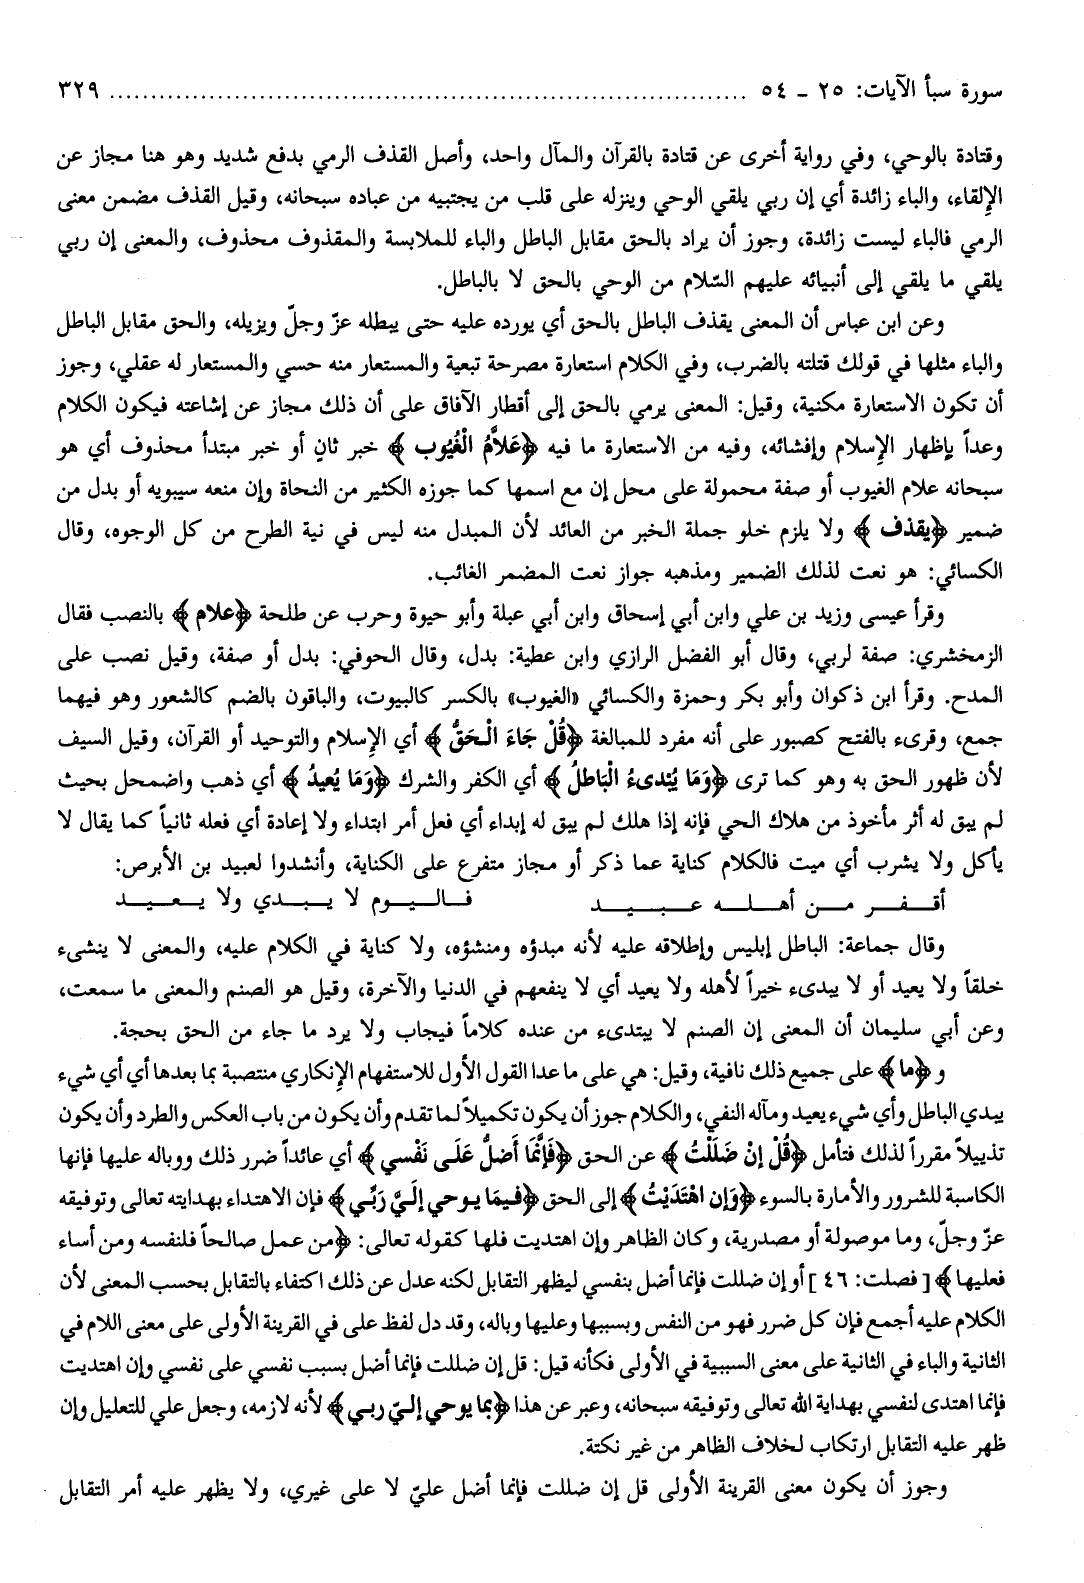 سورة سبأ الآيات: ٢٥ - ٥٤ ................................................................................ ٣٢٩
وقتادة بالوحي، وفي رواية أخرى عن قتادة بالقرآن والمآل واحد، وأصل القذف الرمي بدفع شديد وهو هنا مجاز عن
الإلقاء، والباء زائدة أي إن ربي يلقي الوحي وينزله على قلب من يجتبيه من عباده سبحانه، وقيل القذف مضمن معنى
الرمي فالباء ليست زائدة، وجوز أن يراد بالحق مقابل الباطل والباء للملابسة والمقذوف محذوف، والمعنى إن ربي
يلقي ما يلقي إلى أنبيائه عليهم السّلام من الوحي بالحق لا بالباطل.
وعن ابن عباس أن المعنى يقذف الباطل بالحق أي يورده عليه حتى يبطله عزّ وجلّ ويزيله، والحق مقابل الباطل
والباء مثلها في قولك قتلته بالضرب، وفي الكلام استعارة مصرحة تبعية والمستعار منه حسي والمستعار له عقلي، وجوز
أن تكون الاستعارة مكنية، وقيل: المعنى يرمي بالحق إلى أقطار الآفاق على أن ذلك مجاز عن إشاعته فيكون الكلام
وعداً بإظهار الإسلام وإفشائه، وفيه من الاستعارة ما فيه ﴿عَلاَّمُ الْغُيُوب﴾ خبر ثانٍ أو خبر مبتدأ محذوف أي هو
سبحانه علام الغيوب أو صفة محمولة على محل إن مع اسمها كما جوزه الكثير من النحاة وإن منعه سيبويه أو بدل من
ضمير ﴿يقذف﴾ ولا يلزم خلو جملة الخبر من العائد لأن المبدل منه ليس في نية الطرح من كل الوجوه، وقال
الكسائي: هو نعت لذلك الضمير ومذهبه جواز نعت المضمر الغائب.
وقرأ عيسى وزيد بن علي وابن أبي إسحاق وابن أبي عبلة وأبو حيوة وحرب عن طلحة ﴿علام﴾ بالنصب فقال
الزمخشري: صفة لربي، وقال أبو الفضل الرازي وابن عطية: بدل، وقال الحوفي: بدل أو صفة، وقيل نصب على
المدح. وقرأ ابن ذكوان وأبو بكر وحمزة والكسائي «الغيوب» بالكسر كالبيوت، والباقون بالضم كالشعور وهو فيهما
جمع، وقرىء بالفتح كصبور على أنه مفرد للمبالغة ﴿قُلْ جَاءَ الْحَقُّ﴾ أي الإسلام والتوحيد أو القرآن، وقيل السيف
لأن ظهور الحق به وهو كما ترى ﴿وَمَا يُبْدىءُ الْبَاطلُ﴾ أي الكفر والشرك ﴿وَمَا يُعيدُ﴾ أي ذهب واضمحل بحيث
لم يبق له أثر مأخوذ من هلاك الحي فإنه إذا هلك لم يبق له إبداء أي فعل أمر ابتداء ولا إعادة أي فعله ثانياً كما يقال لا
يأكل ولا يشرب أي ميت فالكلام كناية عما ذكر أو مجاز متفرع على الكناية، وأنشدوا لعبيد بن الأبرص:
أقفر من أهله عبيد فاليوم لا يبدي ولا يعيد
وقال جماعة: الباطل إبليس وإطلاقه عليه لأنه مبدؤه ومنشؤه، ولا كناية في الكلام عليه، والمعنى لا ينشىء
خلقاً ولا يعيد أو لا يبدىء خيراً لأهله ولا يعيد أي لا ينفعهم في الدنيا والآخرة، وقيل هو الصنم والمعنى ما سمعت،
وعن أبي سليمان أن المعنى إن الصنم لا يبتدىء من عنده كلاماً فيجاب ولا يرد ما جاء من الحق بحجة.
و ﴿ما﴾ على جميع ذلك نافية، وقيل: هي على ما عدا القول الأول للاستفهام الإنكاري منتصبة بما بعدها أي أي شيء
يبدي الباطل وأي شيء يعيد ومآله النفي، والكلام جوز أن يكون تكميلاً لما تقدم وأن يكون من باب العكس والطرد وأن يكون
تذييلاً مقرراً لذلك فتأمل ﴿قُلْ إنْ ضَلَلْتُ﴾ عن الحق ﴿فَإنَّمَا أَضلُّ عَلَى نَفْسي﴾ أي عائداً ضرر ذلك ووباله عليها فإنها
الكاسبة للشرور والأمارة بالسوء ﴿وَإن اهْتَدَيْتُ﴾ إلى الحق ﴿فَبمَا يوحي إلَيَّ رَبِّي﴾ فإن الاهتداء بهدايته تعالى وتوفيقه
عزّ وجلّ، وما موصولة أو مصدرية، وكان الظاهر وإن اهتديت فلها كقوله تعالى: ﴿من عمل صالحاً فلنفسه ومن أساء
فعليها﴾ [فصلت: ٤٦] أو إن ضللت فإنما أضل بنفسي ليظهر التقابل لكنه عدل عن ذلك اكتفاء بالتقابل بحسب المعنى لأن
الكلام عليه أجمع فإن كل ضرر فهو من النفس وبسببها وعليها وباله، وقد دل لفظ على في القرينة الأولى على معنى اللام في
الثانية والباء في الثانية على معنى السببية في الأولى فكأنه قيل: قل إن ضللت فإنما أضل بسبب نفسي على نفسي وإن اهتديت
فإنما اهتدى لنفسي بهداية الله تعالى وتوفيقه سبحانه، وعبر عن هذا ﴿بما يوحي إليّ ربي﴾ لأنه لازمه، وجعل علي للتعليل وإن
ظهر عليه التقابل ارتكاب لخلاف الظاهر من غير نكتة.
وجوز أن يكون معنى القرينة الأولى قل إن ضللت فإنما أضل عليّ لا على غيري، ولا يظهر عليه أمر التقابل